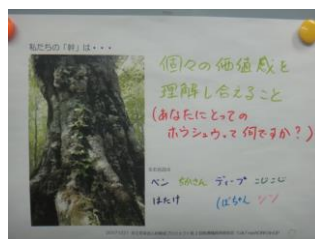 私たちの「幹」は・・・
個々の価値感を
理解し合えること
(あなたにとっての
ホウシュウって何ですか?)
ベン ちかさん ディープ こじこじ
はたけ ばちゃん